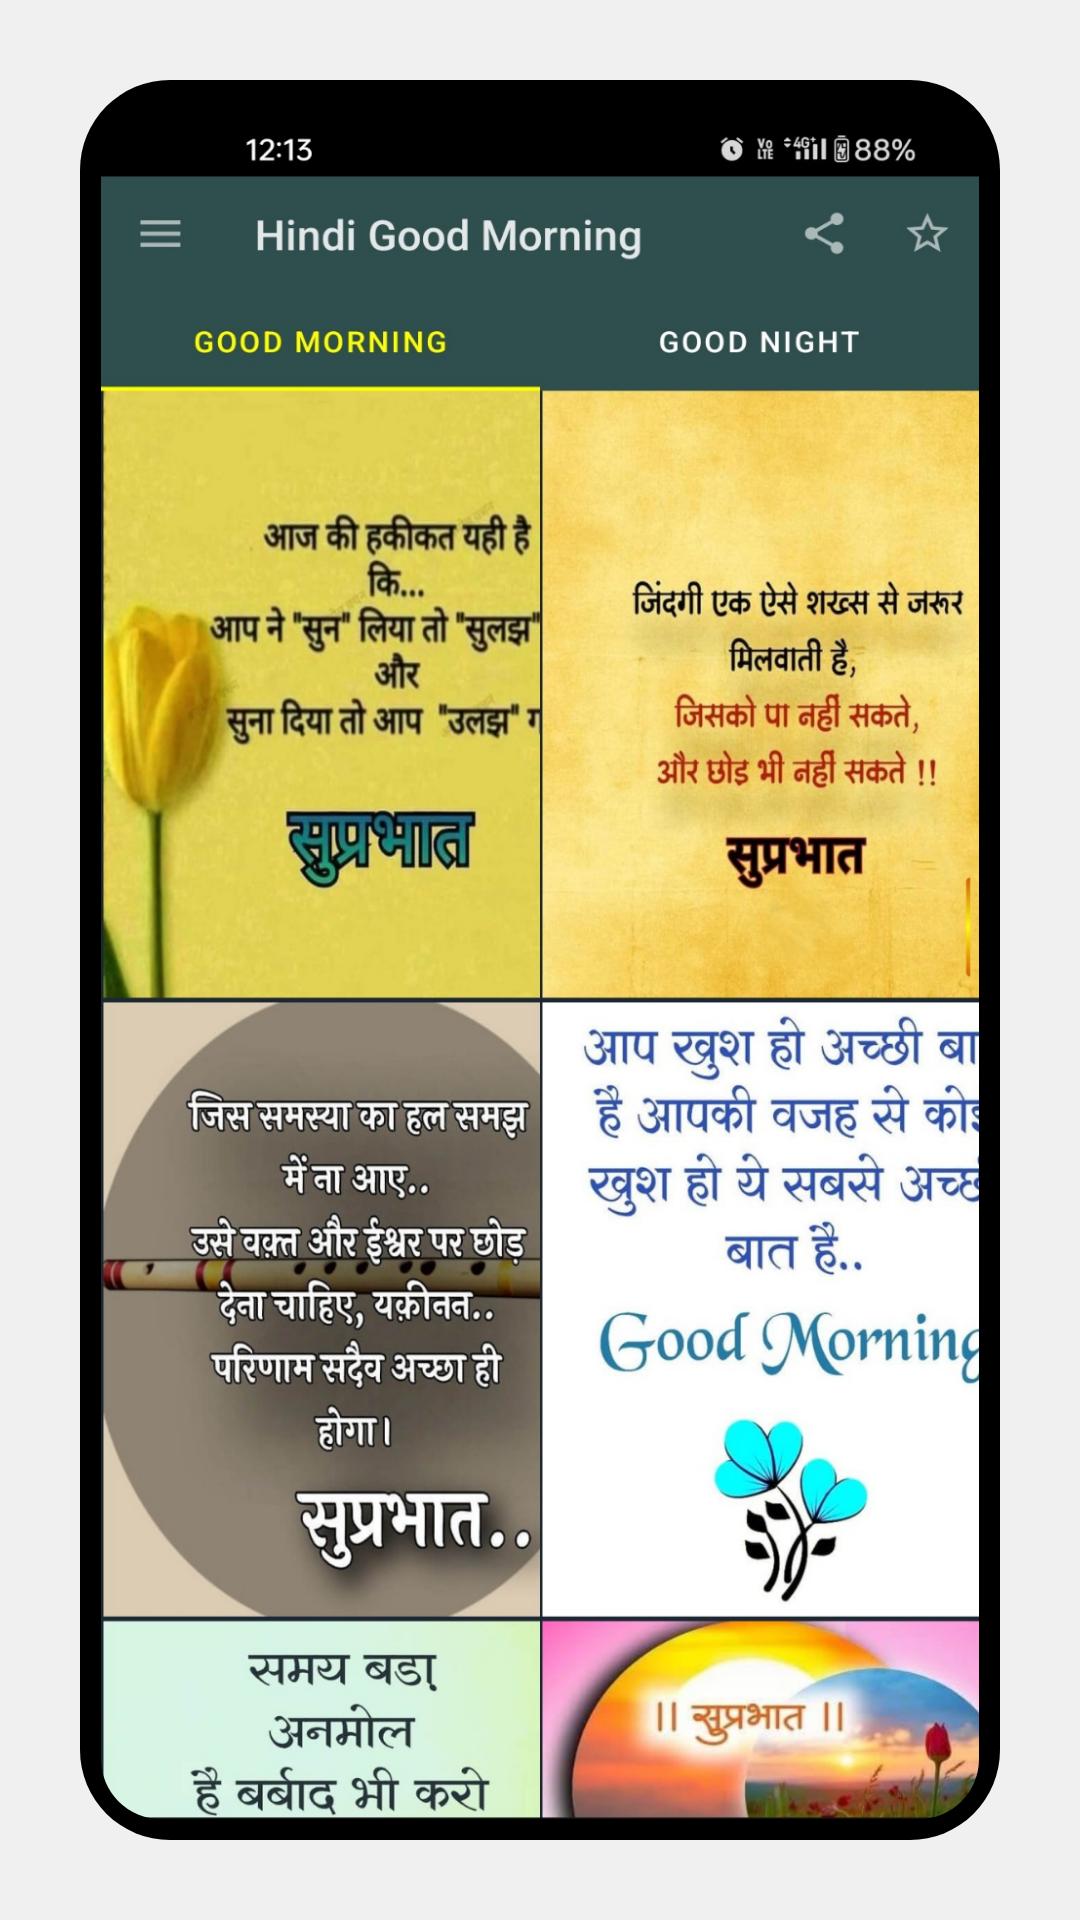 12:13
Vo LTE 4G+ 88%
Hindi Good Morning
GOOD MORNING
GOOD NIGHT
आज की हकीकत यही है
कि...
आप ने "सुन" लिया तो "सुलझ"
और
सुना दिया तो आप "उलझ"
सुप्रभात
जिंदगी एक ऐसे शख्स से जरूर
मिलवाती है,
जिसको पा नहीं सकते,
और छोड़ भी नहीं सकते !!
सुप्रभात
जिस समस्या का हल समझ
में ना आए..
उसे वक़्त और ईश्वर पर छोड़
देना चाहिए, यक़ीनन..
परिणाम सदैव अच्छा ही
होगा।
सुप्रभात..
आप खुश हो अच्छी
है आपकी वजह से
खुश हो ये सबसे
बात है..
Good Morning
समय बडा़
अनमोल
है बर्बाद भी करो
|| सुप्रभात ||